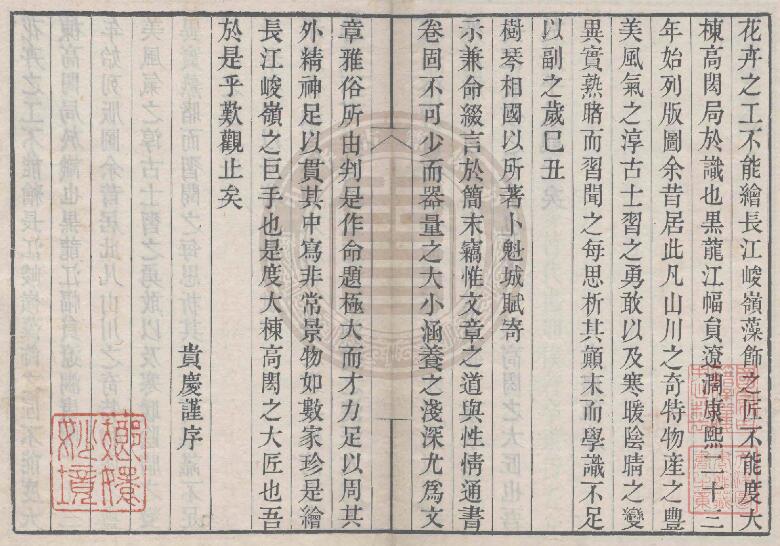 花卉之工不能繪長江峻嶺藻飾之匠不能度大
棟高閎局於識也黑龍江幅員遼濶康熙二十二
年始列版圖余昔居此凡山川之奇特物產之豐
美風氣之淳古士習之勇敢以及寒暖陰晴之變
異實熟睹而習聞之每思析其顛末而學識不足
以副之歲巳丑
樹琴相國以所著卜魁城賦寄
示兼命綴言於簡末竊惟文章之道與性情通書
卷固不可少而器量之大小涵養之淺深尤爲文
章雅俗所由判是作命題極大而才力足以周其
外精神足以貫其中寫非常景物如數家珍是繪
長江峻嶺之巨手也是度大棟高閎之大匠也吾
於是乎歎觀止矣
貴慶謹序
嫏嬛妙境